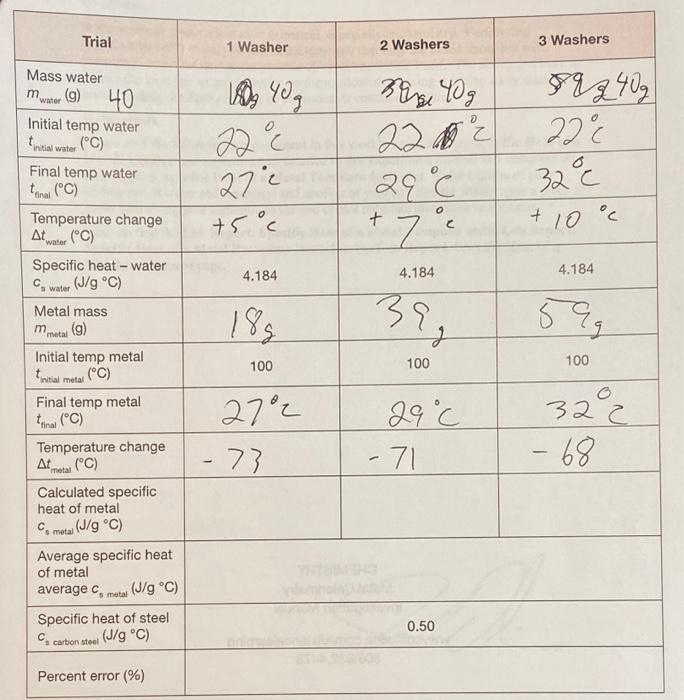 Trial 1 Washer 2 Washers 3 Washers
Mass water
m water (g) 40 40g 40g 40g
Initial temp water
t initial water (°C) 22°C 22 °C 22°C
Final temp water
t final (°C) 27°C 29°C 32°C
Temperature change
Δt water (°C) +5°C +7°C +10 °C
Specific heat – water
c s water (J/g °C) 4.184 4.184 4.184
Metal mass
m metal (g) 18g 39g 59g
Initial temp metal
t initial metal (°C) 100 100 100
Final temp metal
t final (°C) 27°C 29°C 32°C
Temperature change
Δt metal (°C) -73 -71 -68
Calculated specific
heat of metal
c s metal (J/g °C)
Average specific heat
of metal
average c s metal (J/g °C)
Specific heat of steel
c s carbon steel (J/g °C) 0.50
Percent error (%)